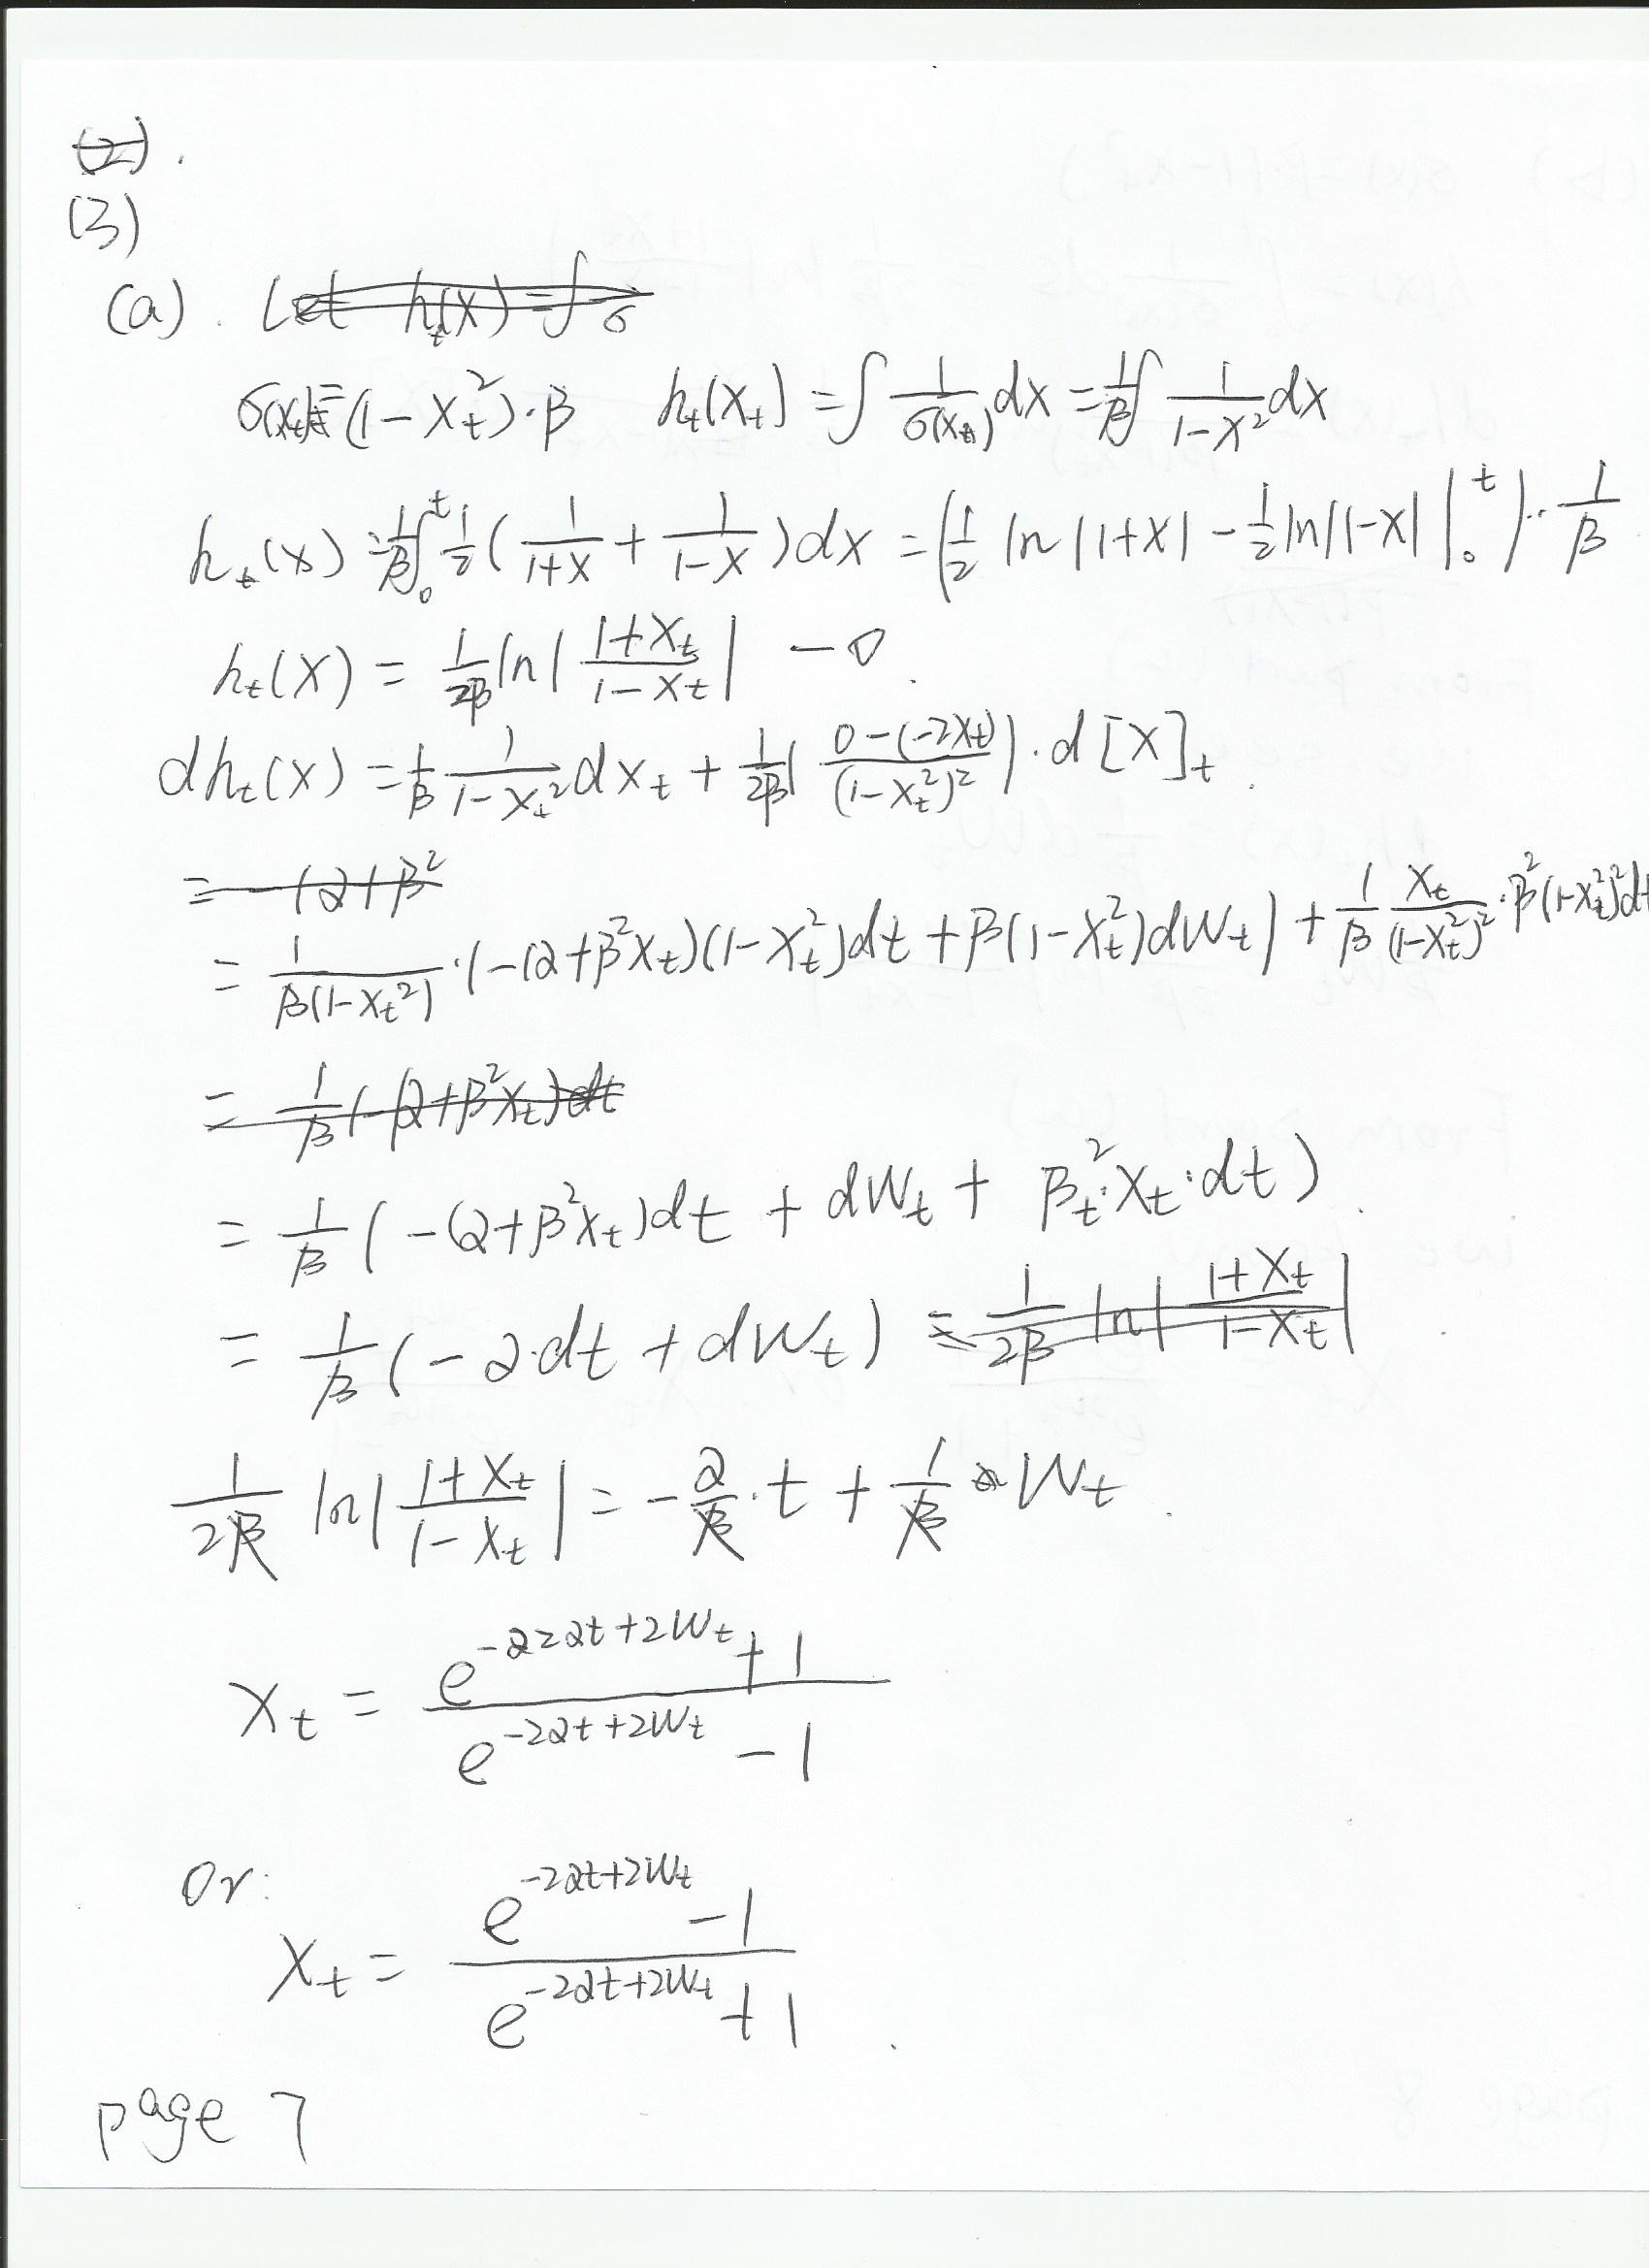 (2).
(3)
(a). Let h_t(x) = ∫ σ
σ(x_t) = (1-X_t^2)·β h_t(X_t) = ∫ 1/σ(X_t) dx = 1/β ∫ 1/(1-X^2) dx
h_t(x) = 1/β ∫_0^t 1/2 (1/(1+X) + 1/(1-X)) dx = (1/2 ln|1+X| - 1/2 ln|1-X| |_0^t)·1/β
h_t(X) = 1/(2β) ln|(1+X_t)/(1-X_t)| - 0.
dh_t(X) = 1/β 1/(1-X_t^2) dX_t + 1/(2β) ((0-(-2X_t))/(1-X_t^2)^2)·d[X]_t.
= -(α+β^2
= 1/(β(1-X_t^2))·(-(α+β^2X_t)(1-X_t^2)dt + β(1-X_t^2)dW_t) + 1/β X_t/(1-X_t^2)^2·β^2(1-X_t^2)^2dt
= 1/β(-(α+β^2X_t)dt
= 1/β(-(α+β^2X_t)dt + dW_t + β_t^2·X_t·dt).
= 1/β(-α·dt + dW_t) = 1/(2β) ln|(1+X_t)/(1-X_t)|
1/(2β) ln|(1+X_t)/(1-X_t)| = -α/β·t + 1/β W_t.
X_t = (e^{-22αt+2W_t}+1)/(e^{-2αt+2W_t}-1)
Or:
X_t = (e^{-2αt+2W_t}-1)/(e^{-2αt+2W_t}+1).
page 7